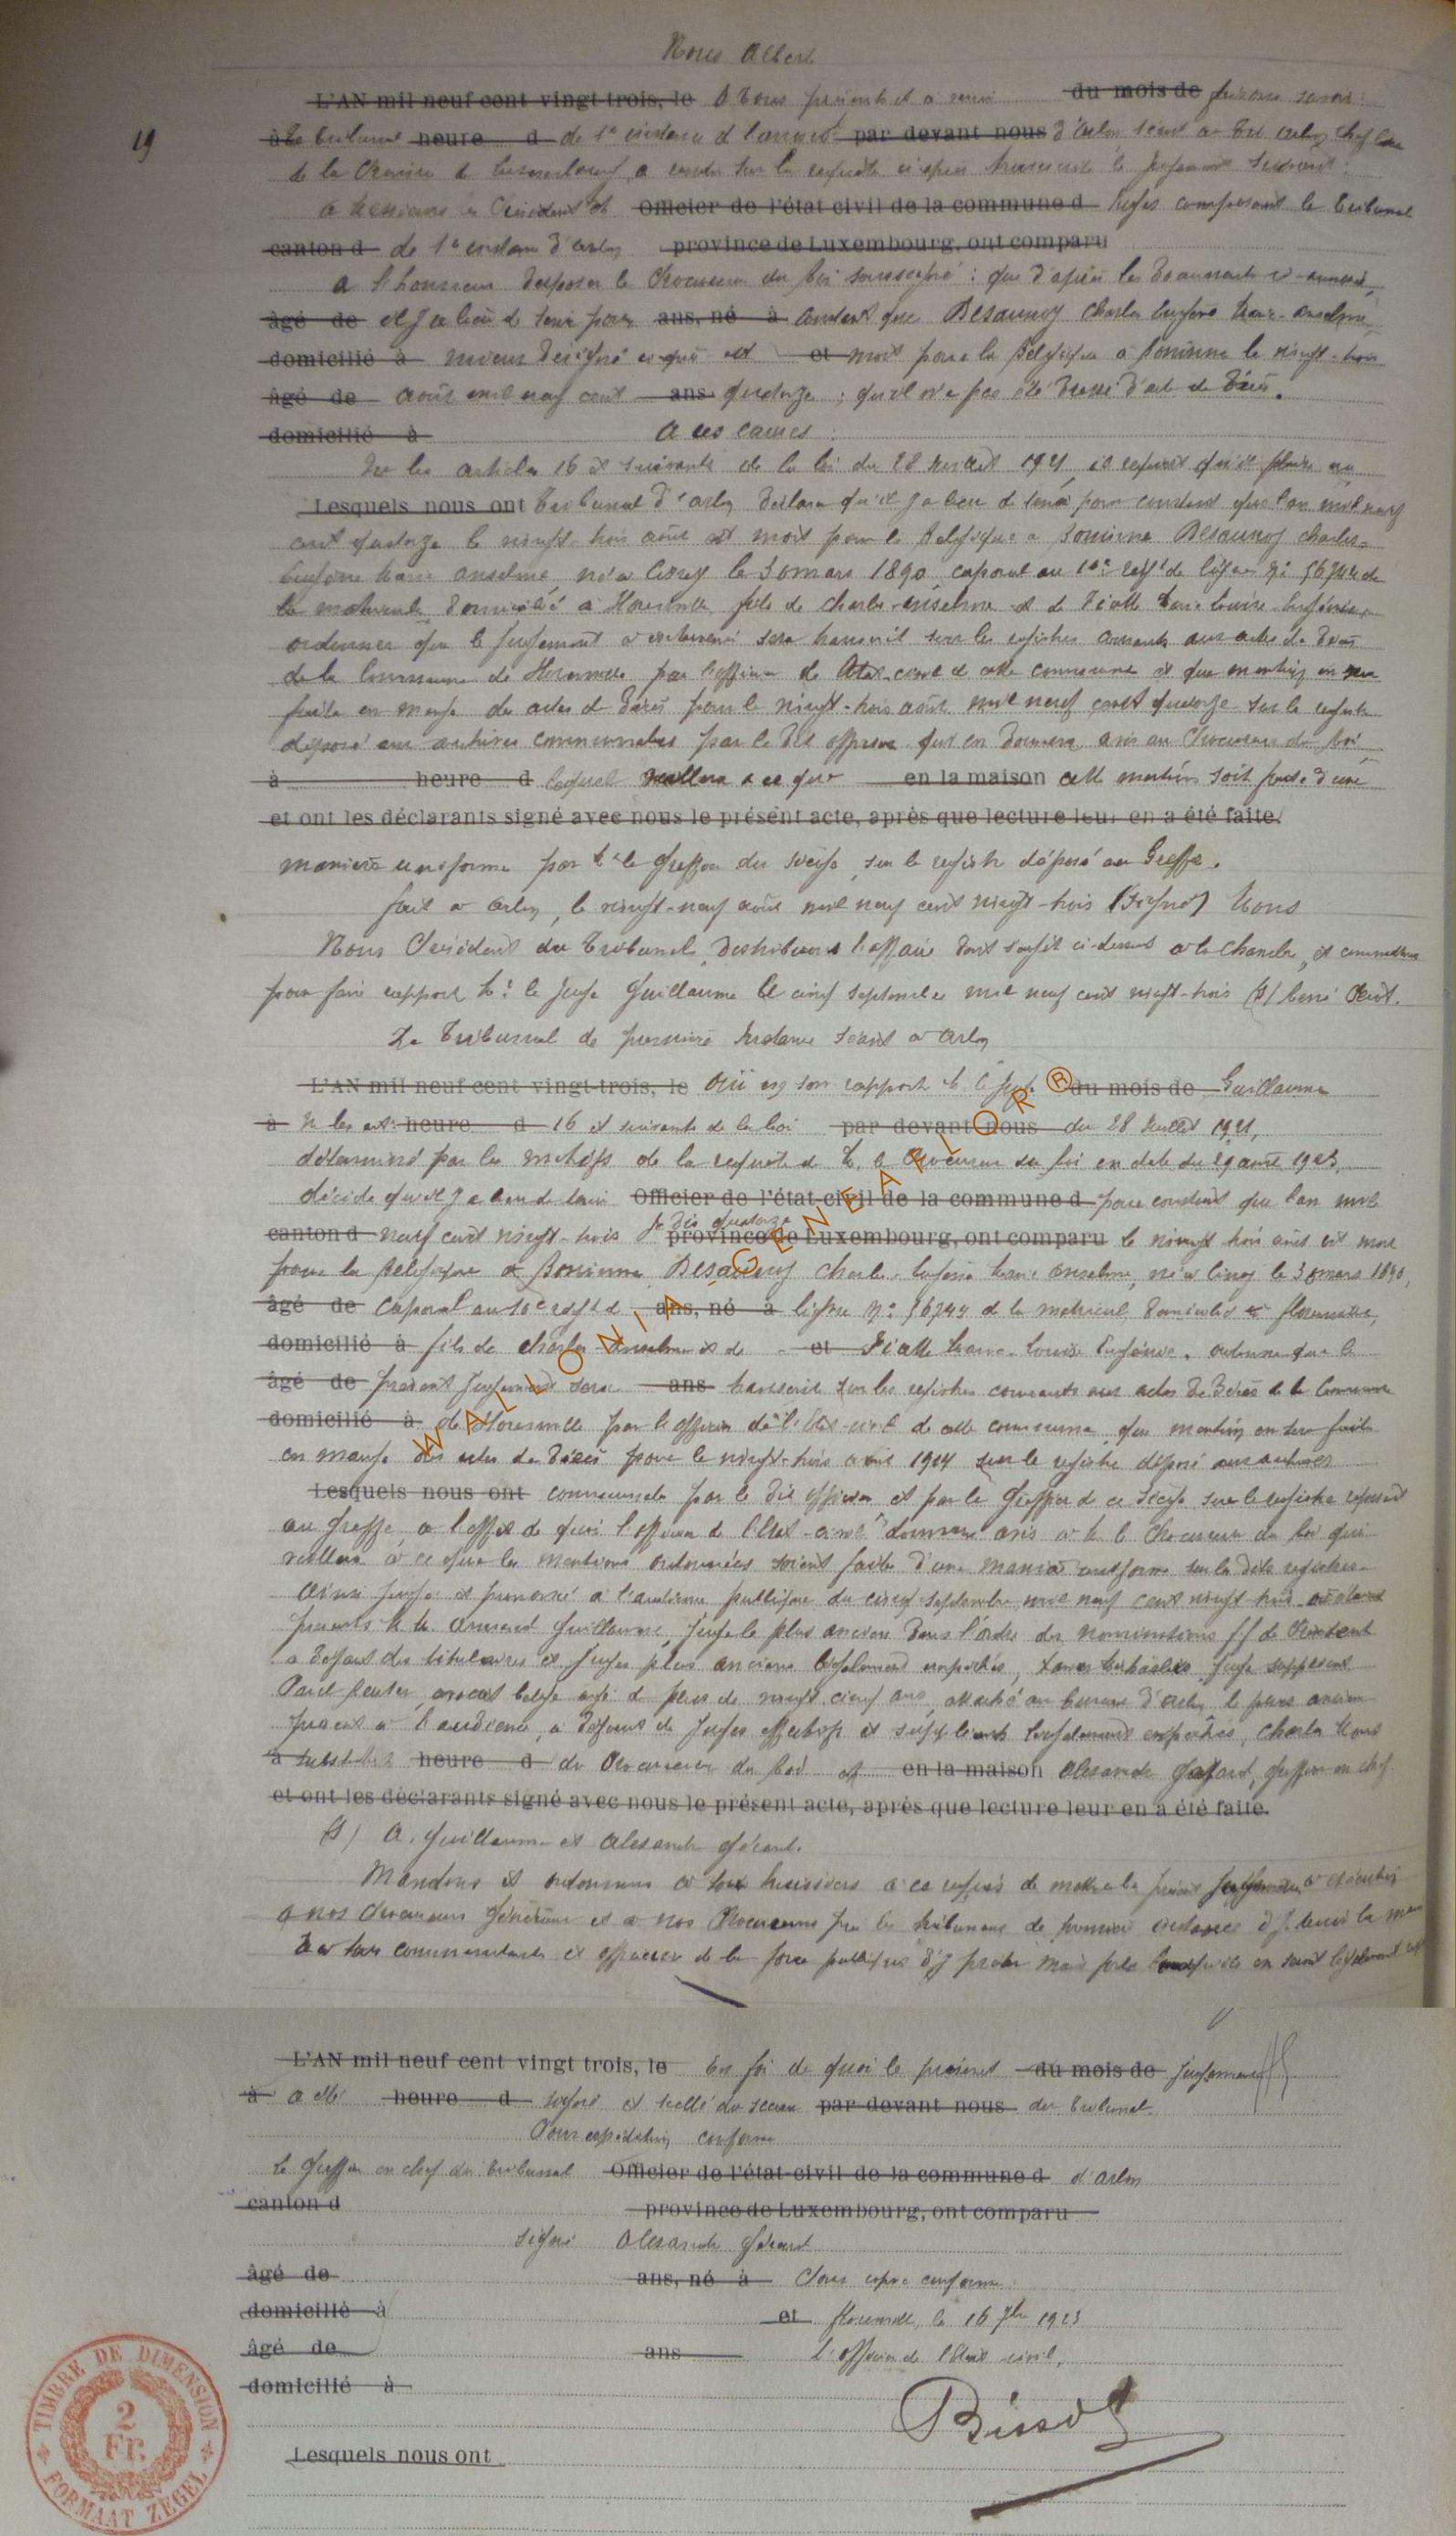 Nous Albert
L'AN mil neuf cent vingt-trois, le A tous présents et à venir du mois de faisons savoir:
19
à Le tribunal heure d de 1e instance d par devant nous d'Arlon séant à
de la Province de Luxembourg, a rendu sur la requête ci-après transcrite le jugement suivant:
A Messieurs les Président et Officier de l'état civil de la commune d Juges composant le tribunal
canton d de 1e instance d'Arlon province de Luxembourg, ont comparu
a l'honneur d'exposer le Procureur du Roi soussigné: que d'après les documents ci-annexés,
âgé de il y a lieu de tenir pour ans, né à constant que Desaunoy Charles Eugène Marie Anselme,
domicilié à mieux désigné ci-après est et mort pour la Belgique à Boninne le vingt-trois
âgé de août mil neuf cent ans quatorze; qu'il n'a pas été dressé d'acte de décès.
domicilié à A ces causes:
Vu les articles 16 et suivants de la loi du 28 Juillet 1921, il requiert qu'il plaise au
Lesquels nous ont tribunal d'Arlon déclarer qu'il y a lieu de tenir pour constant que l'an mil neuf
cent quatorze le vingt-trois août est mort pour la Belgique à Boninne Desaunoy Charles-
Eugène Marie Anselme, né à le 30 mars 1890, caporal au 10e régt de ligne No 56744 de
la matricule, domicilié à fils de Charles-Anselme et de Marie Louise Eugénie,
ordonner que le jugement à intervenir sera transcrit sur les registres courants aux actes de décès
de la commune de par l'officier de l'Etat-civil de cette commune et que mention en sera
faite en marge des actes de décès pour le vingt-trois août mil neuf cent quatorze sur le registre
déposé aux archives communales par le dit officier qui en donnera avis au Procureur du Roi,
à heure d lequel veillera à ce que en la maison cette mention soit faite d'une
et ont les déclarants signé avec nous le présent acte, après que lecture leur en a été faite.
manière uniforme par Mr le greffier du siège, sur le registre déposé au Greffe.
Fait à Arlon, le vingt-neuf août mil neuf cent vingt-trois (Signé)
Nous Président du Tribunal, distribuons l'affaire dont s'agit ci-dessus à la chambre, et commettons
pour faire rapport Mr le juge Guillaume le cinq septembre mil neuf cent vingt-trois (s)
Le Tribunal de première Instance séant à Arlon
L'AN mil neuf cent vingt-trois, le Ouï en son rapport M. le juge du mois de Guillaume
à Vu les art: heure d 16 et suivants de la loi par devant nous du 28 Juillet 1921,
déterminé par les motifs de la requête de M. le Procureur du Roi en date du 29 août 1923,
décide qu'il y a lieu de tenir Officier de l'état-civil de la commune d pour constant que l'an mil
canton d neuf cent vingt-trois je dis quatorze province de Luxembourg, ont comparu le vingt trois août est mort
pour la Belgique à Boninne, Desaunoy Charles-Eugène Marie Anselme, né à le 30 mars 1890,
âgé de Caporal au 10e régt de ans, né à ligne No 56744 de la matricule, domicilié à
domicilié à fils de Charles-Anselme et de et Marie-Louise Eugénie, ordonne que le
âgé de présent jugement sera ans transcrit sur les registres courants aux actes de décès de la commune
domicilié à de par l'officier de l'Etat-civil de cette commune, que mention en sera faite
en marge des actes de décès pour le vingt-trois août 1914 sur le registre déposé aux archives
Lesquels nous ont communales par le dit officier et par le Greffier de ce siège sur le registre reposant
au greffe, à l'effet de quoi l'officier de l'Etat-civil donnera avis à M. le Procureur du Roi qui
veillera à ce que les mentions ordonnées soient faites d'une manière uniforme sur les dits registres.
Ainsi jugé et prononcé à l'audience publique du cinq septembre mil neuf cent vingt-trois où étaient
présents M. M. Armand Guillaume, juge le plus ancien dans l'ordre des nominations ff de Président
à défaut des titulaires et juges plus anciens légalement empêchés, juge suppléant
Paul avocat belge âgé de plus de vingt cinq ans, attaché au barreau d'Arlon, le plus ancien
présent à l'audience, à défaut de juges effectifs et suppléants légalement empêchés, Charles
à substitut heure d du Procureur du Roi et en la maison Alexandre Gérard, greffier en chef
et ont les déclarants signé avec nous le présent acte, après que lecture leur en a été faite.
(s) A. Guillaume et Alexandre Gérard.
Mandons et ordonnons à tous huissiers à ce requis de mettre le présent jugement à exécution
à nos Procureurs Généraux et à nos Procureurs près les tribunaux de première instance d'y tenir la main
et à tous commandants et officiers de la force publique d'y prêter main forte en seront légalement
WALLONIA-GENEAFLOR®
L'AN mil neuf cent vingt trois, le En foi de quoi le présent du mois de jugement
à a été heure d signé et scellé du sceau par devant nous du tribunal.
Pour expédition conforme
Le Greffier en chef du tribunal Officier de l'état-civil de la commune d d'Arlon
canton d province de Luxembourg, ont comparu
signé Alexandre Gérard
âgé de ans, né à Pour copie conforme:
domicilié à et le 16 7bre 1923
âgé de ans L'officier de l'Etat-civil,
domicilié à
Lesquels nous ont
TIMBRE DE DIMENSION
2
Fr.
FORMAAT ZEGEL